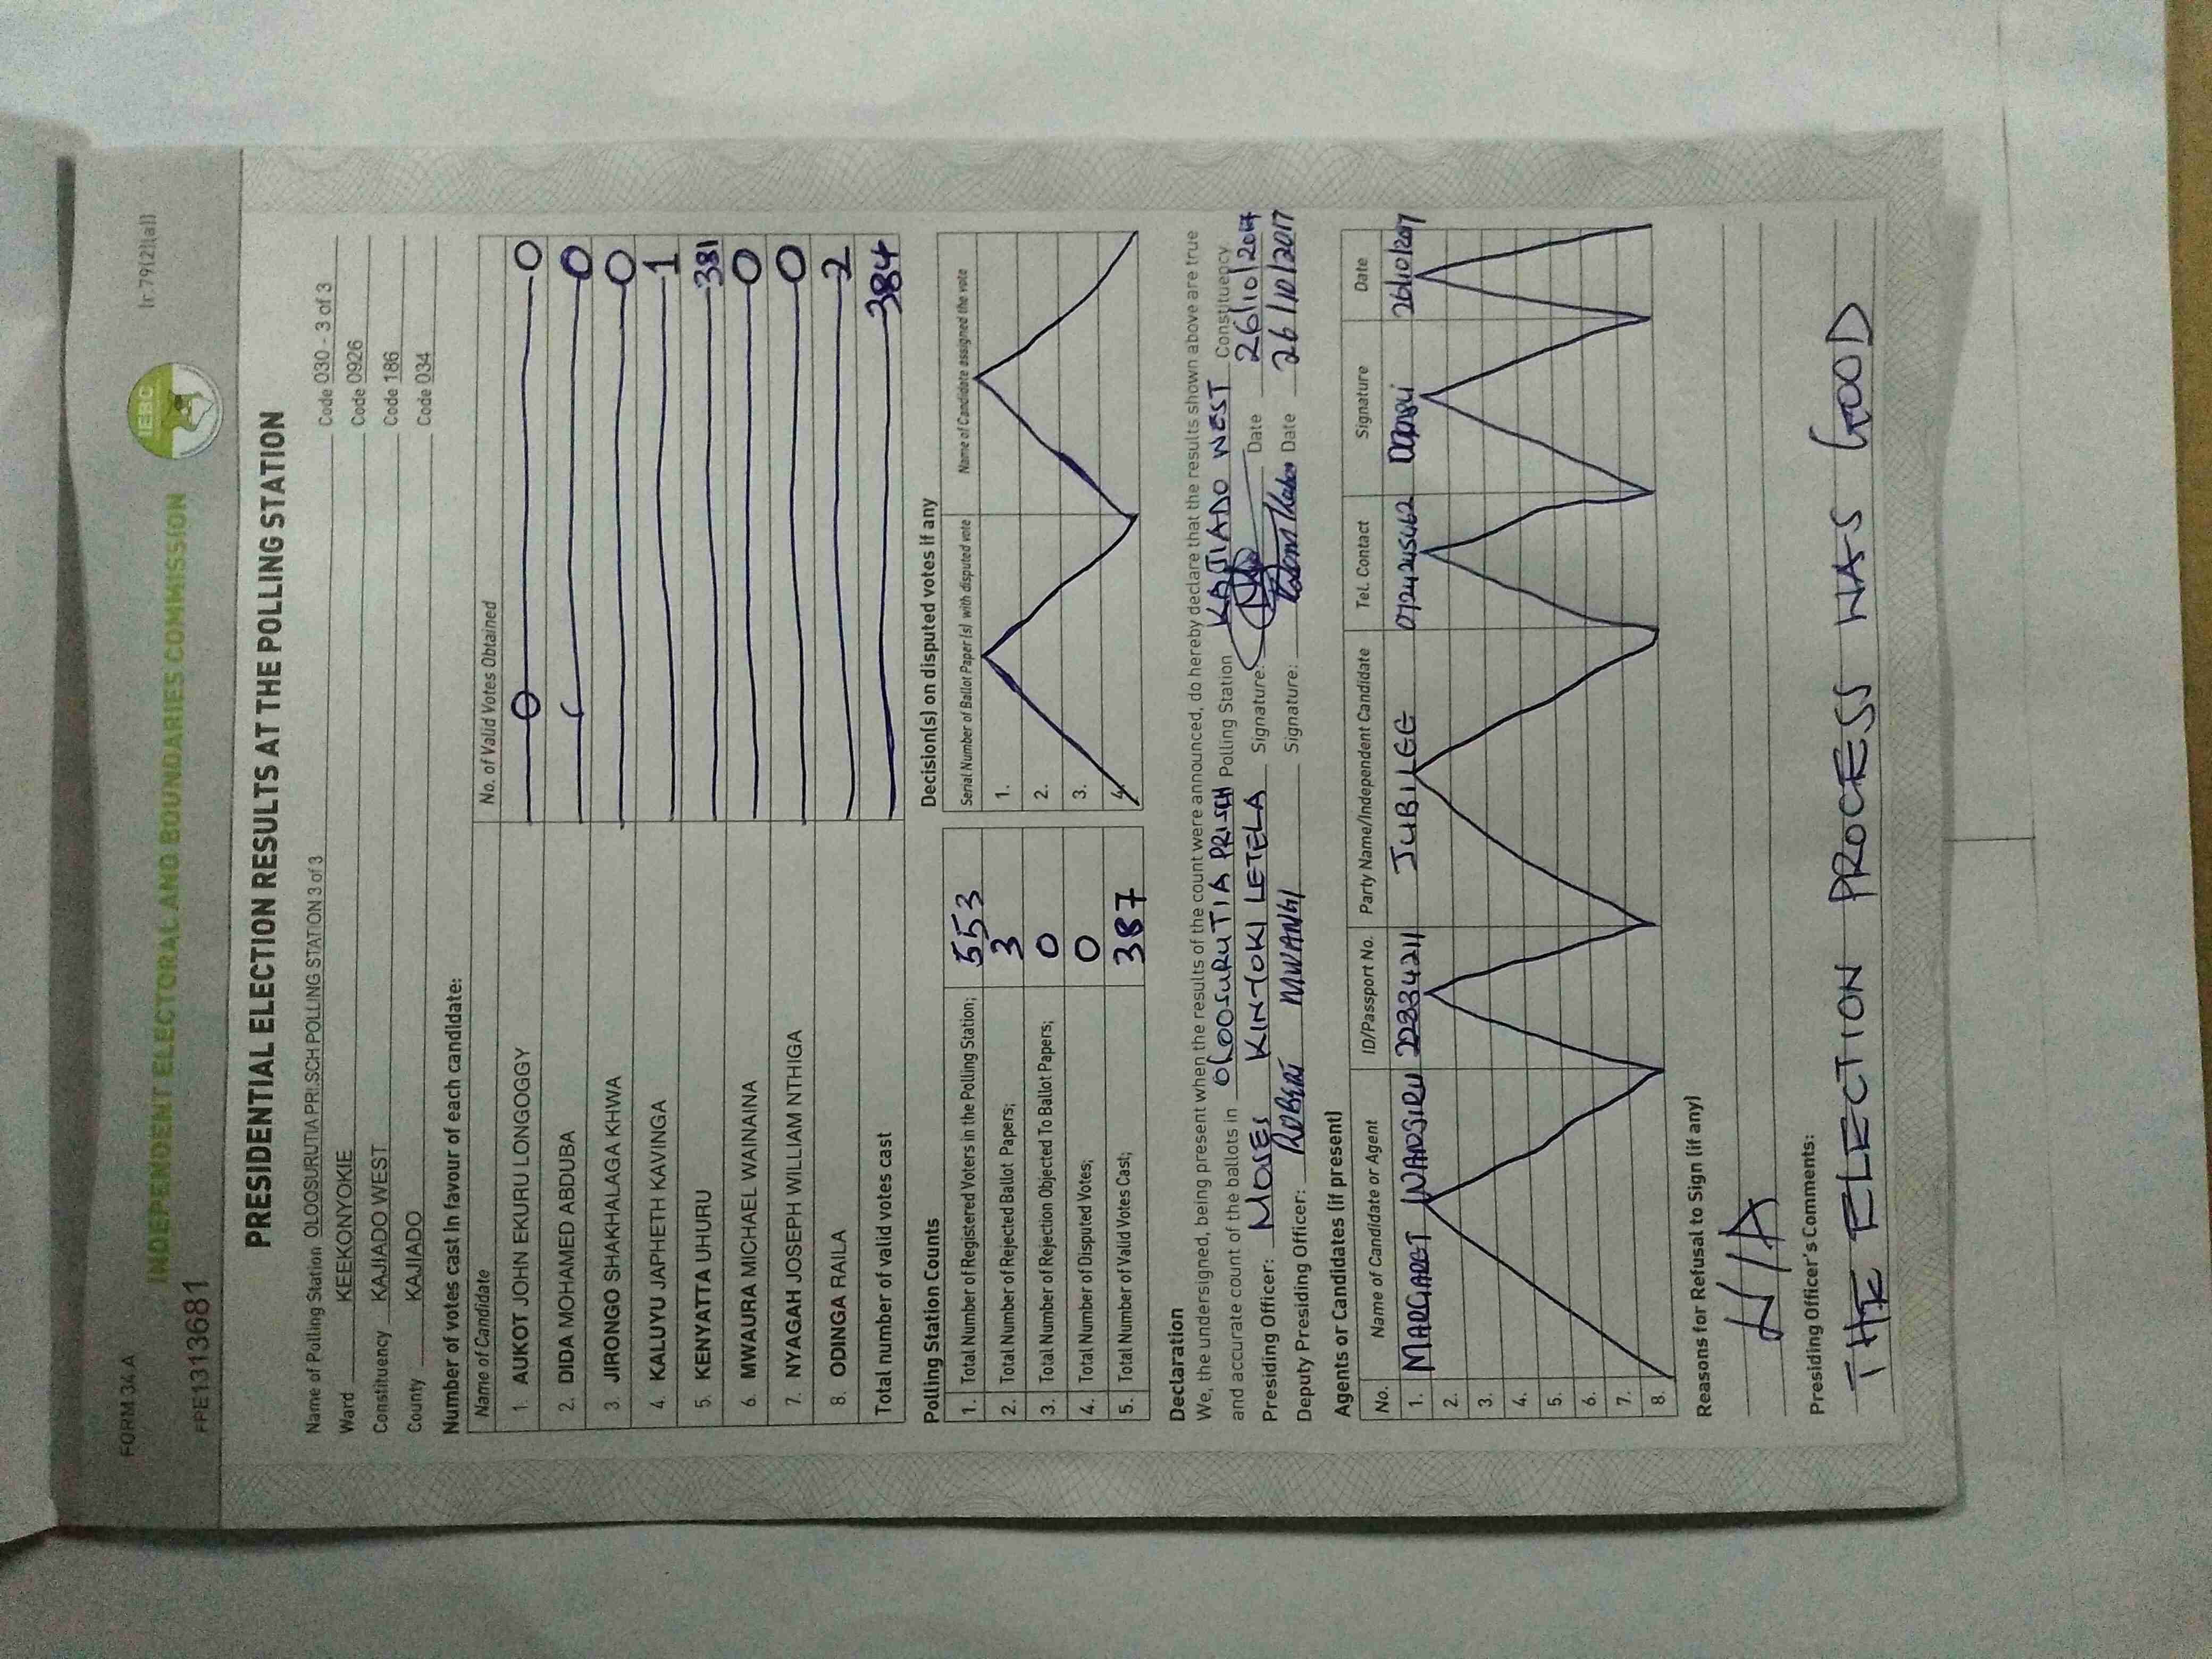 FORM 34A
(r.79(2)(a))
IEBC
INDEPENDENT ELECTORAL AND BOUNDARIES COMMISSION
PRESIDENTIAL ELECTION RESULTS AT THE POLLING STATION
Name of Polling Station OLOOSURUTIA PRI.SCH POLLING STATION 3 of 3 Code 030 - 3 of 3
Ward KEEKONYOKIE Code 0926
Constituency KAJIADO WEST Code 186
County KAJIADO Code 034
Number of votes cast in favour of each candidate:
Name of Candidate No. of Valid Votes Obtained
1. AUKOT JOHN EKURU LONGOGGY 0
2. DIDA MOHAMED ABDUBA 0
3. JIRONGO SHAKHALAGA KHWA 0
4. KALUYU JAPHETH KAVINGA 1
5. KENYATTA UHURU 381
6. MWAURA MICHAEL WAINAINA 0
7. NYAGAH JOSEPH WILLIAM NTHIGA 0
8. ODINGA RAILA 2
Total number of valid votes cast 384
Polling Station Counts
1. Total Number of Registered Voters in the Polling Station; 553
2. Total Number of Rejected Ballot Papers; 3
3. Total Number of Rejection Objected To Ballot Papers; 0
4. Total Number of Disputed Votes; 0
5. Total Number of Valid Votes Cast; 387
Decision(s) on disputed votes if any
Serial Number of Ballot Paper(s) with disputed vote Name of Candidate assigned the vote
1.
2.
3.
4.
Declaration
We, the undersigned, being present when the results of the count were announced, do hereby declare that the results shown above are true
and accurate count of the ballots in OLOOSURUTIA PRI SCH Polling Station KAJIADO WEST Constituency
Presiding Officer: MOSES KINTOKI LETELA Signature: Date 26/10/2017
Deputy Presiding Officer: ROBERT MWANGI Signature: Date 26/10/2017
Agents or Candidates (if present)
No. Name of Candidate or Agent ID/Passport No. Party Name/Independent Candidate Tel. Contact Signature Date
1. MARGARET WANJIRU 22334211 JUBILEE 0724245462 26/10/2017
2.
3.
4.
5.
6.
7.
8.
Reasons for Refusal to Sign (if any)
N/A
Presiding Officer's Comments:
THE ELECTION PROCESS WAS GOOD